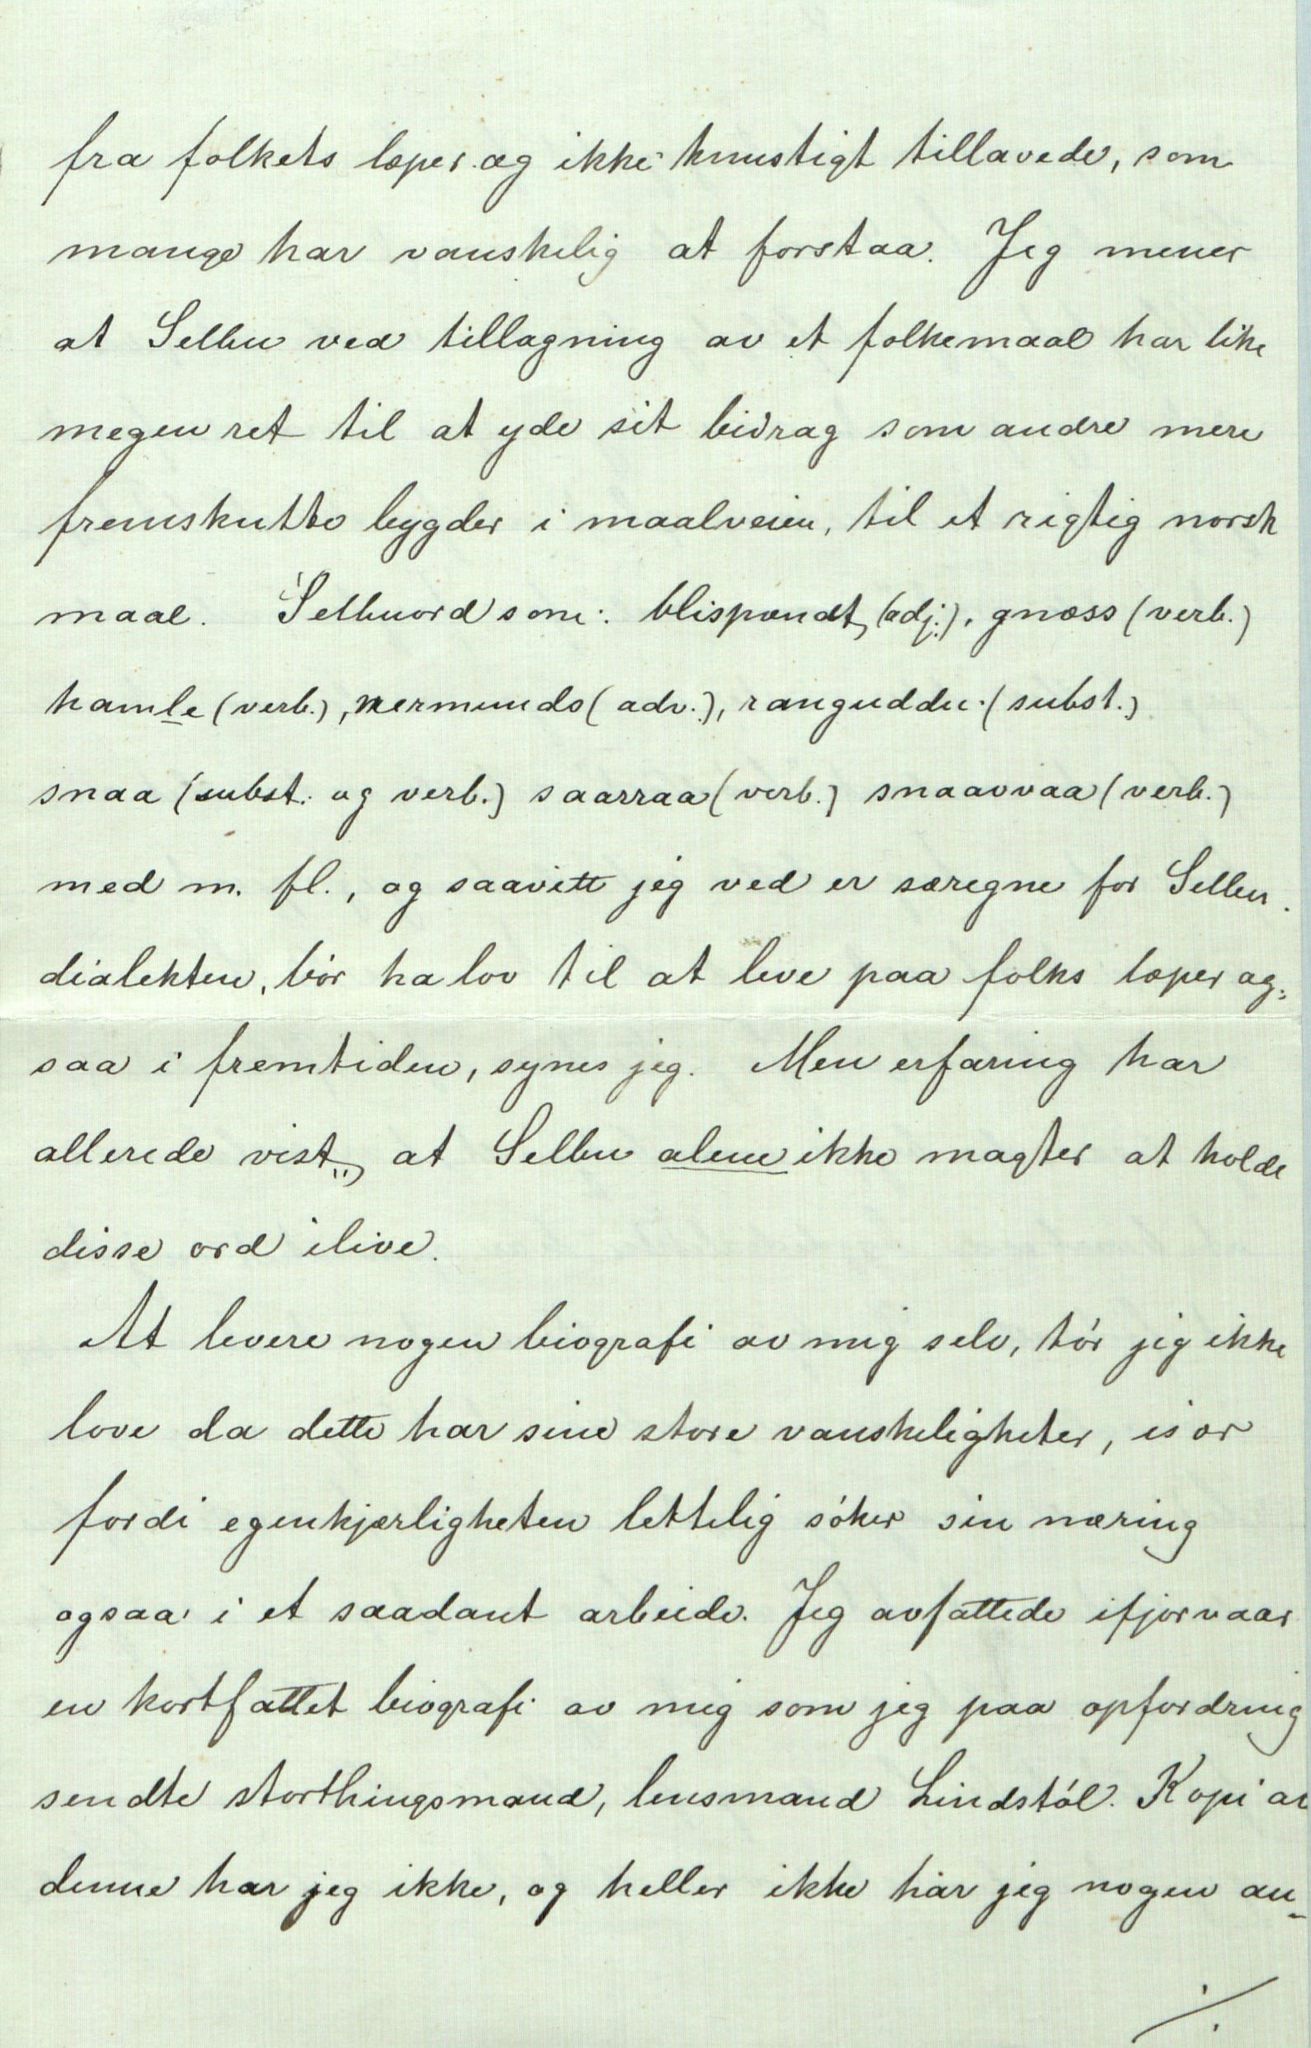 fra folkets læper og ikke kunstigt tillavede, som
mange har vanskelig at forstaa. Jeg mener
at Selbu ved tillagning av et folkemaal har like
megen ret til at yde sit bidrag som andre mere
fremskutte bygder i maalveien, til et rigtig norsk
maal. Selbuord som: blispændt, (adj.), gnæss (verb.)
hamle (verb.), nermunds (adv.), ranguddu (subst.)
snaa (subst. og verb.) saarraa (verb.) snaavvaa (verb.)
med m. fl., og saavitt jeg ved er særegne for Selbu
dialekten, bör ha lov til at leve paa folks læper og-
saa i fremtiden, synes jeg. Men erfaring har
allerede vist, at Selbu alene ikke magter at holde
disse ord ilive.
At levere nogen biografi av mig selv, tör jeg ikke
love da dette har sine store vanskeligheter, især
fordi egenkjærligheten lettelig söker sin næring
ogsaa i et saadant arbeide. Jeg avfattede ifjorvaar
en kortfattet biografi av mig som jeg paa opfordring
sendte storthingsmand, lensmand Lindstöl. Kopi av
denne har jeg ikke, og heller ikke har jeg nogen an-
./.